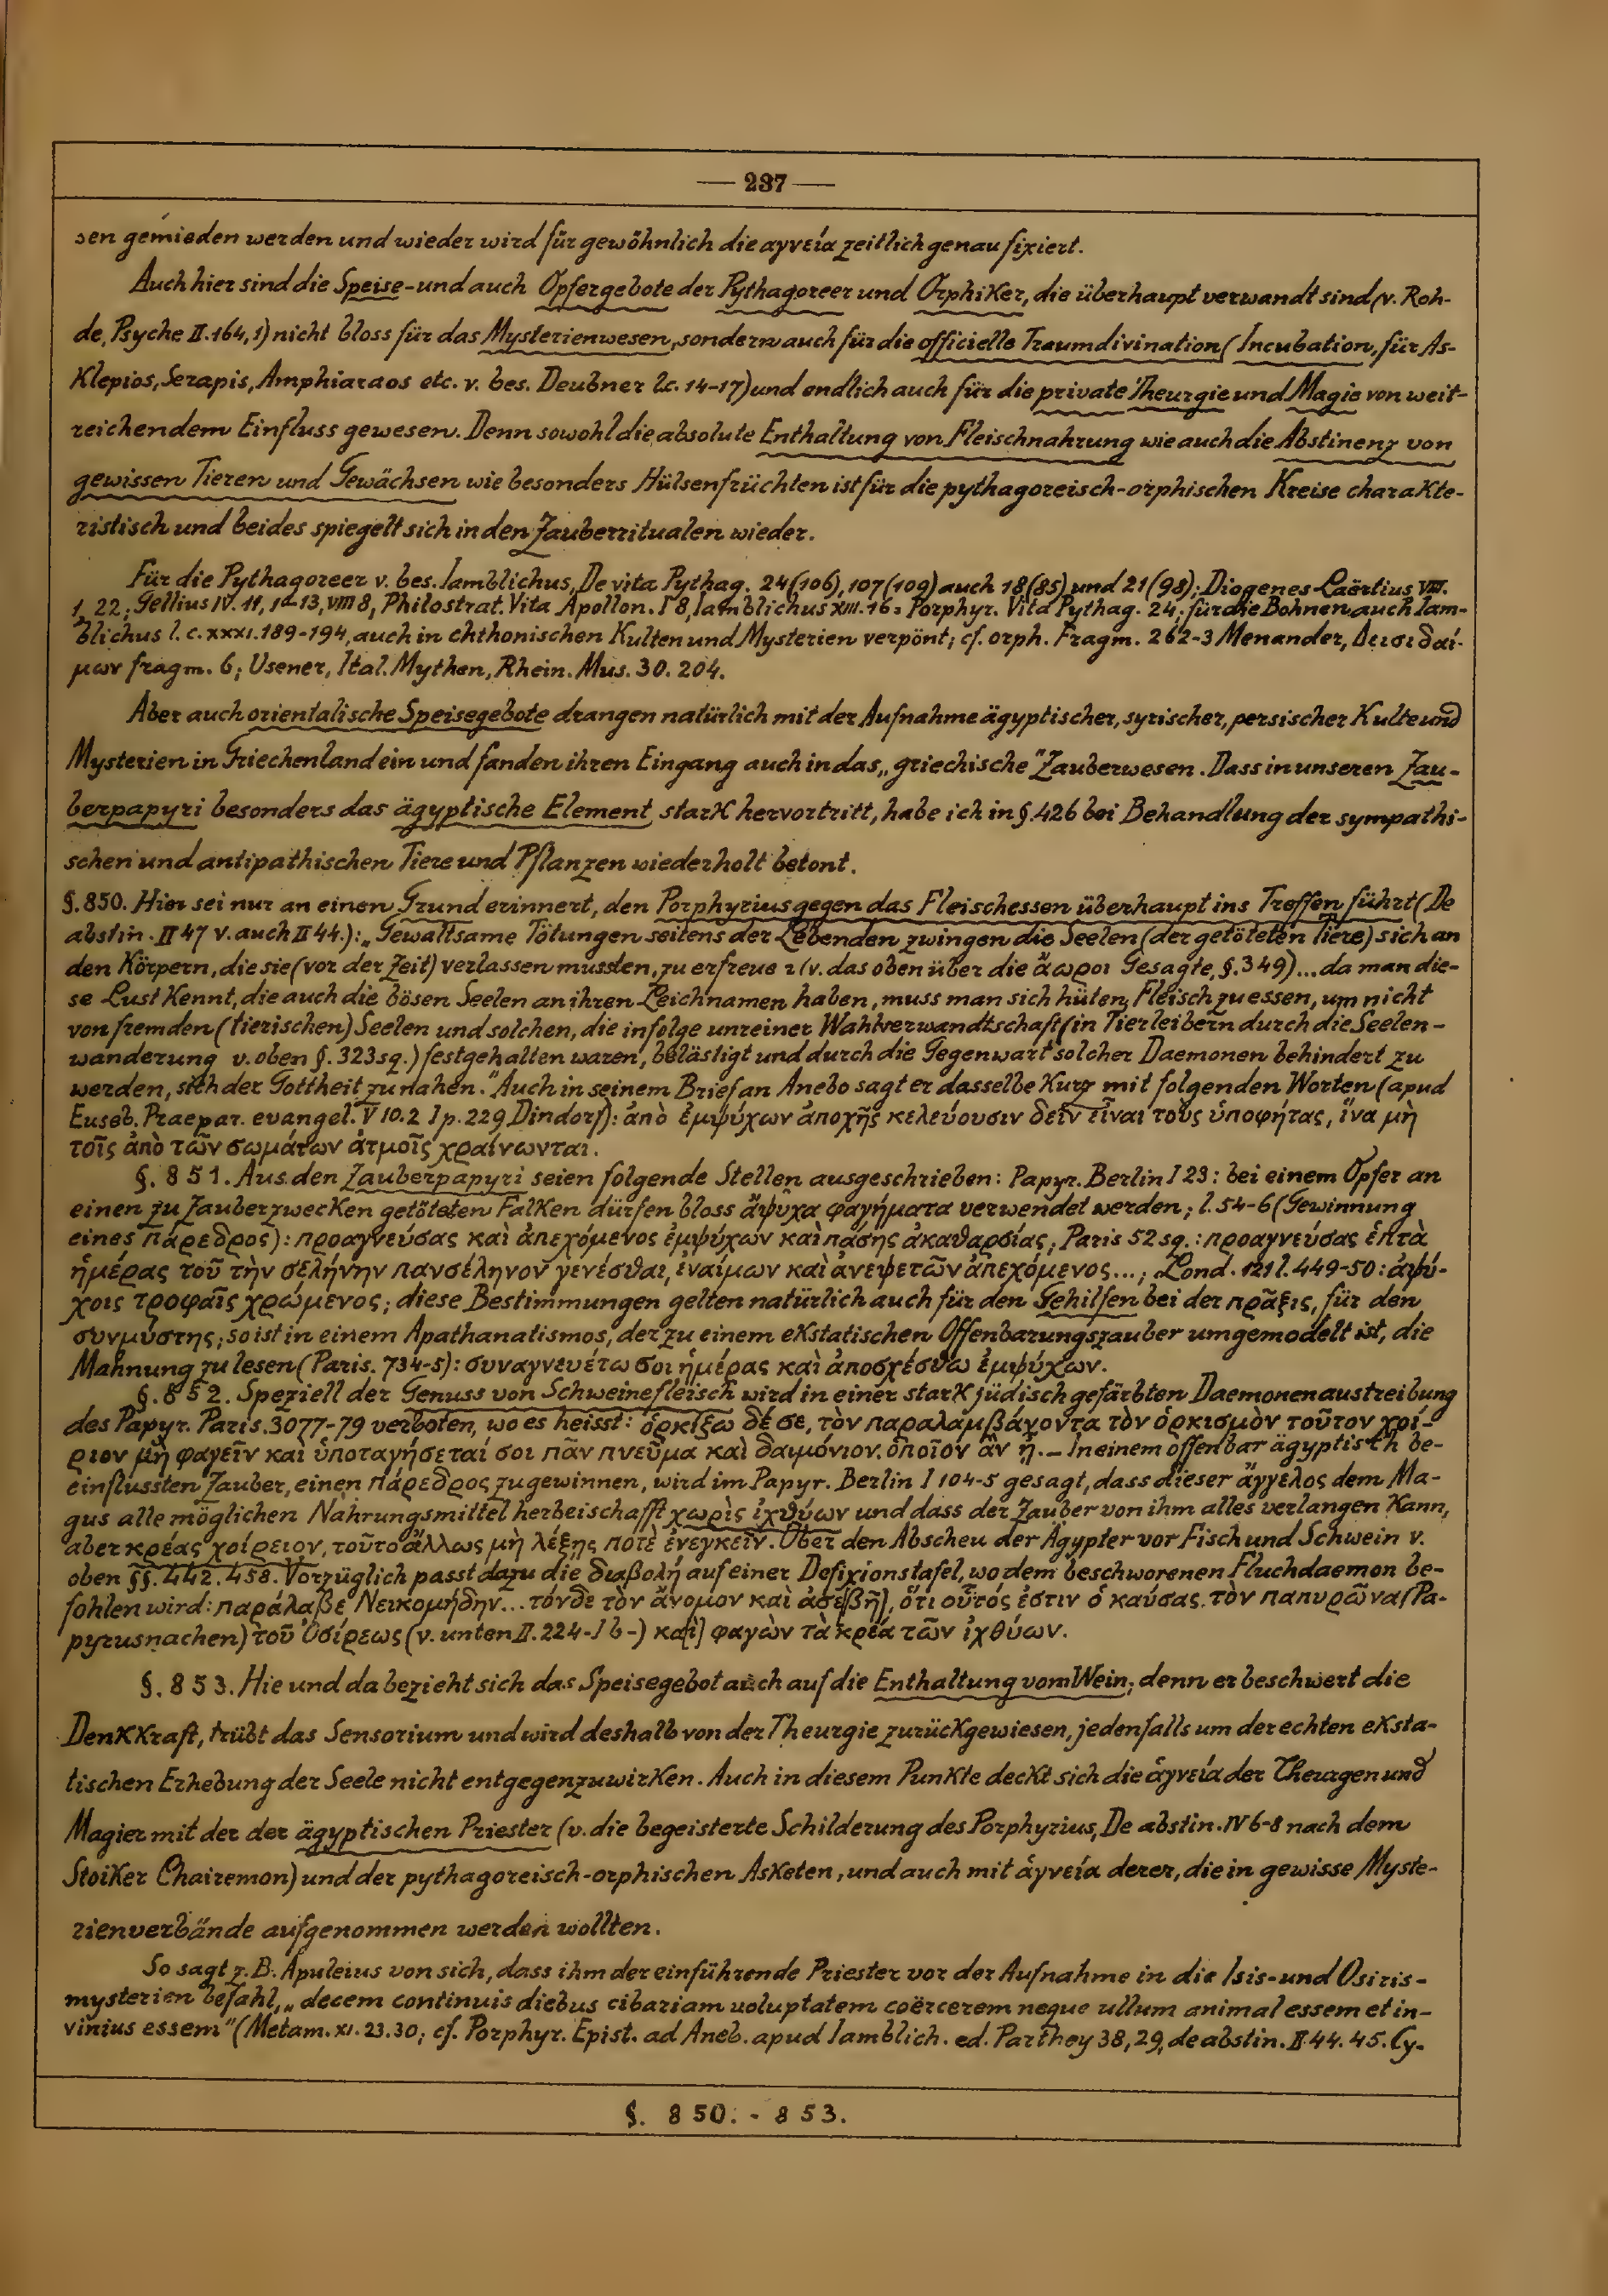 — 237 —
sen gemieden werden und wieder wird für gewöhnlich die αγνεία zeitlich genau fixiert.
Auch hier sind die Speise- und auch Opfergebote der Pythagoreer und Orphiker, die überhaupt verwandt sind (v. Roh-
de, Psyche II. 164, 1) nicht bloss für das Mysterienwesen, sondern auch für die officielle Traumdivination (Incubation, für As-
klepios, Serapis, Amphiaraos etc. v. bes. Deubner l.c. 14-17) und endlich auch für die private Theurgie und Magie von weit-
reichendem Einfluss gewesen. Denn sowohl die absolute Enthaltung von Fleischnahrung wie auch die Abstinenz von
gewissen Tieren und Gewächsen wie besonders Hülsenfrüchten ist für die pythagoreisch-orphischen Kreise charakte-
ristisch und beides spiegelt sich in den Zauberritualen wieder.
Für die Pythagoreer v. bes. Iamblichus, De vita Pythag. 24 (106), 107 (109) auch 18 (85) und 21 (98); Diogenes-Laërtius VIII.
1, 22; Gellius IV. 11, 1-13, VIII 8, Philostrat. Vita Apollon. I 8, Iamblichus XIII. 16 = Porphyr. Vita Pythag. 24; für die Bohnen auch Iam-
blichus l. c. XXXI. 189-194, auch in chthonischen Kulten und Mysterien verpönt; cf. orph. Fragm. 262-3 Menander, Δεισιδαί-
μων fragm. 6; Usener, Ital. Mythen, Rhein. Mus. 30. 204.
Aber auch orientalische Speisegebote drangen natürlich mit der Aufnahme ägyptischer, syrischer, persischer Kulte und
Mysterien in Griechenland ein und fanden ihren Eingang auch in das „griechische" Zauberwesen. Dass in unseren Zau-
berpapyri besonders das ägyptische Element stark hervortritt, habe ich in §. 426 bei Behandlung der sympathi-
schen und antipathischen Tiere und Pflanzen wiederholt betont.
§. 850. Hier sei nur an einen Grund erinnert, den Porphyrius gegen das Fleischessen überhaupt ins Treffen führt (De
abstin. II 47 v. auch II 44.): „Gewaltsame Tötungen seitens der Lebenden zwingen die Seelen (der getöteten Tiere) sich an
den Körpern, die sie (vor der Zeit) verlassen mussten, zu erfreuen (v. das oben über die ἄωροι Gesagte, §. 349) ... da man die-
se Lust kennt, die auch die bösen Seelen an ihren Leichnamen haben, muss man sich hüten, Fleisch zu essen, um nicht
von fremden (tierischen) Seelen und solchen, die infolge unreiner Wahlverwandtschaft (in Tierleibern durch die Seelen-
wanderung v. oben §. 323 sq.) festgehalten waren, belästigt und durch die Gegenwart solcher Daemonen behindert zu
werden, sich der Gottheit zu nahen." Auch in seinem Brief an Anebo sagt er dasselbe kurz mit folgenden Worten (apud
Euseb. Praepar. evangel. V 10. 2 I p. 229 Dindorf): ἀπὸ ἐμψύχων ἀποχῆς κελεύουσιν δεῖν εἶναι τοὺς ὑποφήτας, ἵνα μὴ
τοῖς ἀπὸ τῶν σωμάτων ἀτμοῖς χραίνωνται.
§. 851. Aus den Zauberpapyri seien folgende Stellen ausgeschrieben: Papyr. Berlin I 23: bei einem Opfer an
einen zu Zauberzwecken getöteten Falken dürfen bloss ἄψυχα φαγήματα verwendet werden; l. 54-6 (Gewinnung
eines πάρεδρος): προαγνεύσας καὶ ἀπεχόμενος ἐμψύχων καὶ πάσης ἀκαθαρσίας; Paris 52 sq.: προαγνεύσας ἑπτὰ
ἡμέρας τοῦ τὴν σελήνην πανσέληνον γενέσθαι, ἐναίμων καὶ ἀνεψετῶν ἀπεχόμενος ...; Lond. 121 l. 449-50: ἀψύ-
χοις τροφαῖς χρώμενος; diese Bestimmungen gelten natürlich auch für den Gehilfen bei der πρᾶξις, für den
συνμύστης; so ist in einem Apathanatismos, der zu einem ekstatischen Offenbarungszauber umgemodelt ist, die
Mahnung zu lesen (Paris. 734-5): συναγνευέτω σοι ἡμέρας καὶ ἀποσχέσθω ἐμψύχων.
§. 852. Speziell der Genuss von Schweinefleisch wird in einer stark jüdisch gefärbten Daemonenaustreibung
des Papyr. Paris. 3077-79 verboten, wo es heisst: ὁρκίζω δέ σε, τὸν παραλαμβάνοντα τὸν ὁρκισμὸν τοῦτον χοί-
ριον μὴ φαγεῖν καὶ ὑποταγήσεταί σοι πᾶν πνεῦμα καὶ δαιμόνιον, ὁποῖον ἂν ᾖ. — In einem offenbar ägyptisch be-
einflussten Zauber, einen πάρεδρος zu gewinnen, wird im Papyr. Berlin I 104-5 gesagt, dass dieser ἄγγελος dem Ma-
gus alle möglichen Nahrungsmittel herbeischafft χωρὶς ἰχθύων und dass der Zauber von ihm alles verlangen kann,
aber κρέας χοίρειον, τοῦτο ἄλλως μὴ λέξῃς ποτὲ ἐνεγκεῖν. Über den Abscheu der Ägypter vor Fisch und Schwein v.
oben §§. 442. 458. Vorzüglich passt dazu die διαβολή auf einer Defixionstafel, wo dem beschworenen Fluchdaemon be-
fohlen wird: παράλαβε Νεικομήδην ... τόνδε τὸν ἄνομον καὶ ἀσε[βῆ], ὅτι οὗτός ἐστιν ὁ καύσας τὸν παπυρῶνα (Pa-
pyrusnachen) τοῦ Ὀσίρεως (v. unten II. 224-I b-) κα[ὶ] φαγὼν τὰ κρέα τῶν ἰχθύων.
§. 853. Hie und da bezieht sich das Speisegebot auch auf die Enthaltung vom Wein; denn er beschwert die
Denkkraft, trübt das Sensorium und wird deshalb von der Theurgie zurückgewiesen, jedenfalls um der echten eksta-
tischen Erhebung der Seele nicht entgegenzuwirken. Auch in diesem Punkte deckt sich die ἁγνεία der Theurgen und
Magier mit der der ägyptischen Priester (v. die begeisterte Schilderung des Porphyrius, De abstin. IV 6-8 nach dem
Stoiker Chairemon) und der pythagoreisch-orphischen Asketen, und auch mit ἁγνεία derer, die in gewisse Myste-
rienverbände aufgenommen werden wollten.
So sagt z. B. Apuleius von sich, dass ihm der einführende Priester vor der Aufnahme in die Isis- und Osiris-
mysterien befahl, „decem continuis diebus cibariam uoluptatem coërcerem neque ullum animal essem et in-
vinius essem" (Metam. XI. 23. 30; cf. Porphyr. Epist. ad Aneb. apud Iamblich. ed. Parthey 38, 29, de abstin. II 44. 45. Cy-
§. 850. - 853.